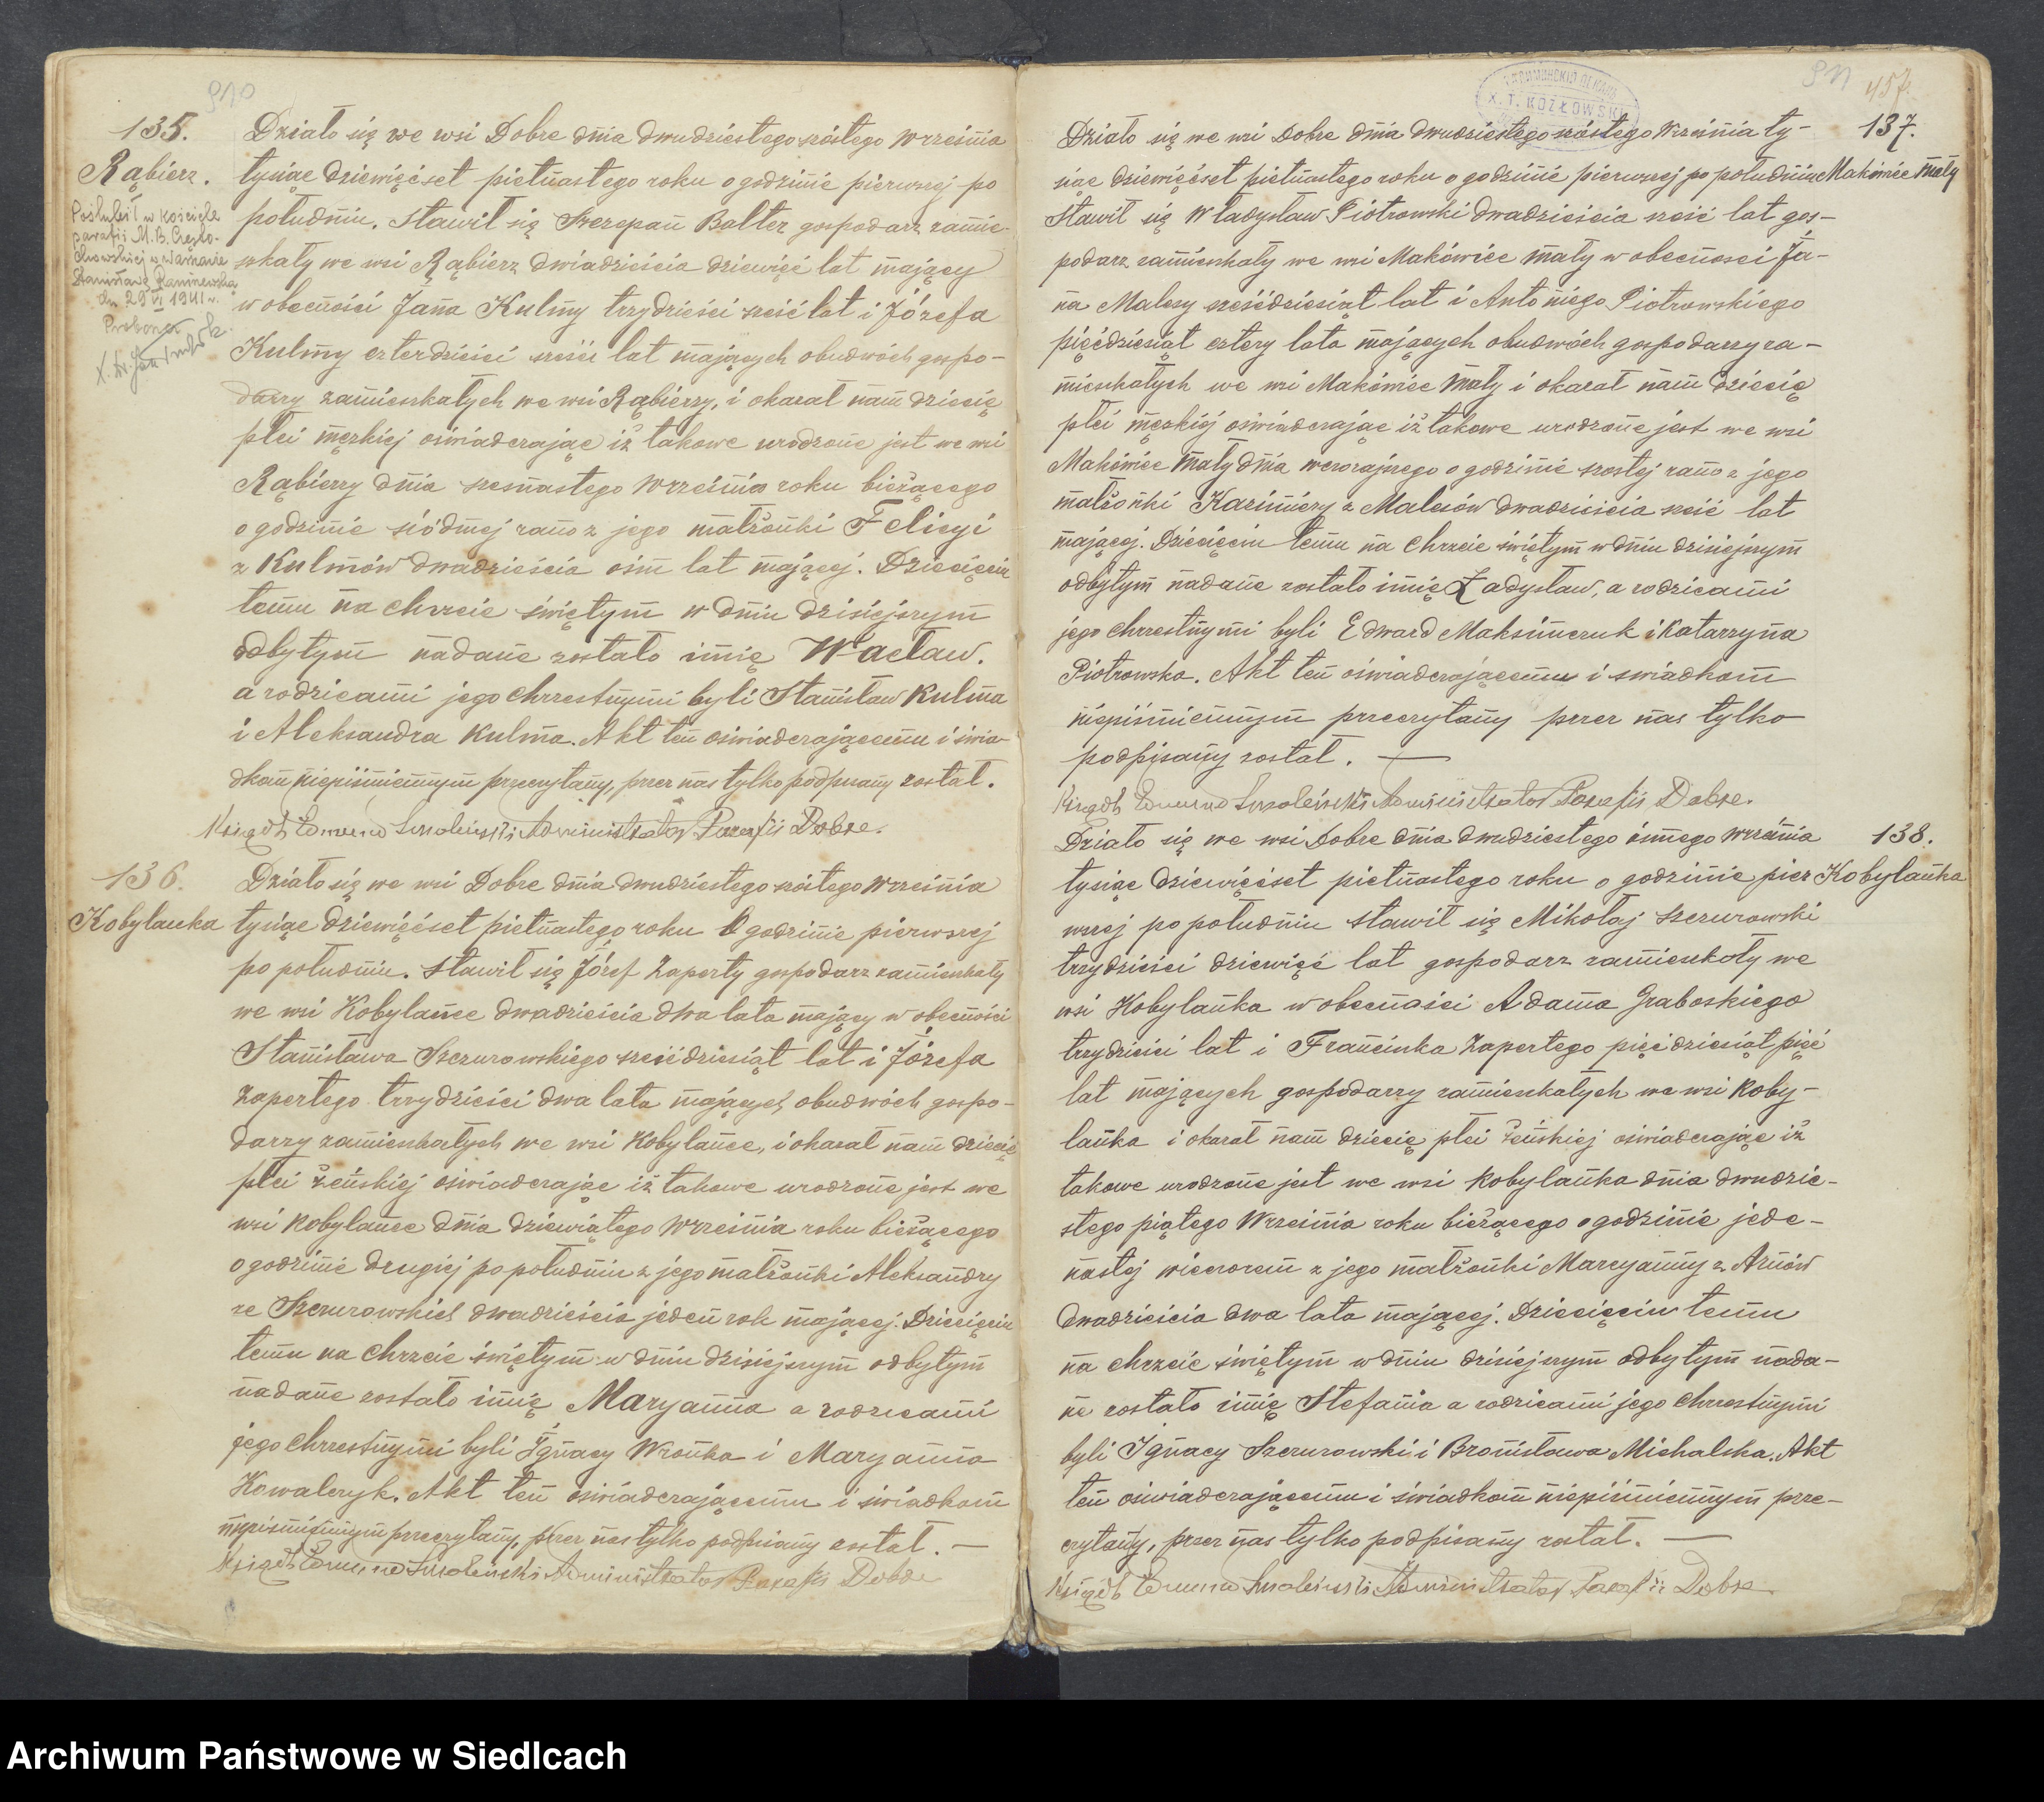 910
135.
Rąbierz.
Poślubił w kościele
parafii M.B. Często-
chowskiej w Warszawie
Stanisławę
dn 29 VI 1941 r.
Działo się we wsi Dobre dnia dwudziestego szóstego Września
tysiąc dziewięćset piętnastego roku o godzinie pierwszej po
południu. Stawił się Szczepan Balter gospodarz zamie-
szkały we wsi Rąbierz dwiadzieścia dziewięć lat mający
w obecności Jana Kulmy trzydzieści sześć lat i Józefa
Kulmy czterdzieści sześć lat mających obudwóch gospo-
darzy zamieszkałych we wsi Rąbierzy, i okazał nam dziecię
płci męzkiej oświadczając iż takowe urodzone jest we wsi
Rąbierzy dnia szesnastego Września roku bieżącego
o godzinie siódmej rano z jego małżonki Felicyi
z Kulmów dwadzieścia ośm lat mającej. Dziecięciu
temu na chrzcie świętym w dniu dzisiejszym
odbytym nadane zostało imię Wacław.
a rodzicami jego chrzestnymi byli Stanisław Kulma
i Aleksandra Kulma. Akt ten oświadczającemu i świa-
dkom niepiśmiennym przeczytany, przez nas tylko podpisany został.
Ksiądz Edmund Smoleński Administrator Parafii Dobre.
136.
Kobylanka
Działo się we wsi Dobre dnia dwudziestego szóstego Września
tysiąc dziewięćset piętnastego roku O godzinie pierwszej
po południu. Stawił się Józef Zaperty gospodarz zamieszkały
we wsi Kobylance dwadzieścia dwa lata mający w obecności
Stanisława Szczurowskiego sześćdziesiąt lat i Józefa
Zapertego trzydzieści dwa lata mających obudwóch gospo-
darzy zamieszkałych we wsi Kobylance, i okazał nam dziecię
płci żeńskiej oświadczając iż takowe urodzone jest we
wsi Kobylance dnia dziewiątego Września roku bieżącego
o godzinie drugiej po południu z jego małżonki Aleksandry
ze Szczurowskich dwadzieścia jeden rok mającej. Dziecięciu
temu na chrzcie świętym w dniu dzisiejszym odbytym
nadane zostało imię Maryanna a rodzicami
jego chrzestnymi byli Ignacy Wronka i Maryanna
Kowalczyk. Akt ten oświadczającemu i świadkom
niepiśmiennym przeczytany, przez nas tylko podpisany został. —
Ksiądz Edmund Smoleński Administrator Parafii Dobre
911 457.
X. T. KOZŁOWSKI
137.
Makówiec Mały
Działo się we wsi Dobre dnia dwudziestego szóstego Września ty-
siąc dziewięćset piętnastego roku o godzinie pierwszej po południu
Stawił się Władysław Piotrowski dwadzieścia sześć lat gos-
podarz zamieszkały we wsi Makówiec Mały w obecności Ja-
na Malesy sześćdziesiąt lat i Antoniego Piotrowskiego
pięćdziesiąt cztery lata mających obudwóch gospodarzy za-
mieszkałych we wsi Makówiec Mały i okazał nam dziecię
płci męskiej oświadczając iż takowe urodzone jest we wsi
Makówiec Mały dnia wczorajszego o godzinie szóstej rano z jego
małżonki Kazimiery z Malesów dwadzieścia sześć lat
mającej. Dziecięciu temu na chrzcie świętym w dniu dzisiejszym
odbytym nadane zostało imię Ładysław, a rodzicami
jego chrzestnymi byli Edward Maksimczuk i Katarzyna
Piotrowska. Akt ten oświadczającemu i swiadkom
niepiśmiennym przeczytany przez nas tylko
podpisany został. —
Ksiądz Edmund Smoleński Administrator Parafii Dobre.
138.
Kobylanka
Działo się we wsi Dobre dnia dwudziestego ósmego Września
tysiąc dziewięćset piętnastego roku o godzinie pier
wszej po południu stawił się Mikołaj Szczurowski
trzydzieści dziewięć lat gospodarz zamieszkały we
wsi Kobylanka w obecności Adama Graboskiego
trzydzieści lat i Franciszka Zapertego pięćdziesiąt pięć
lat mających gospodarzy zamieszkałych we wsi Koby-
lanka i okazał nam dziecię płci żeńskiej oświadczając iż
takowe urodzone jest we wsi Kobylanka dnia dwudzie-
stego piątego Września roku bieżącego o godzinie jede-
nastej wieczorem z jego małżonki Marcyanny z Arńów
dwadzieścia dwa lata mającej. Dziecięciu temu
na chrzcie świętym w dniu dzisiejszym odbytym nada-
ne zostało imię Stefania a rodzicami jego chrzestnymi
byli Ignacy Szczurowski i Bronisława Michalska. Akt
ten oświadczającemu i świadkom niepiśmiennym prze-
czytany, przez nas tylko podpisany został. —
Ksiądz Edmund Smoleński Administrator Parafii Dobre
Archiwum Państwowe w Siedlcach